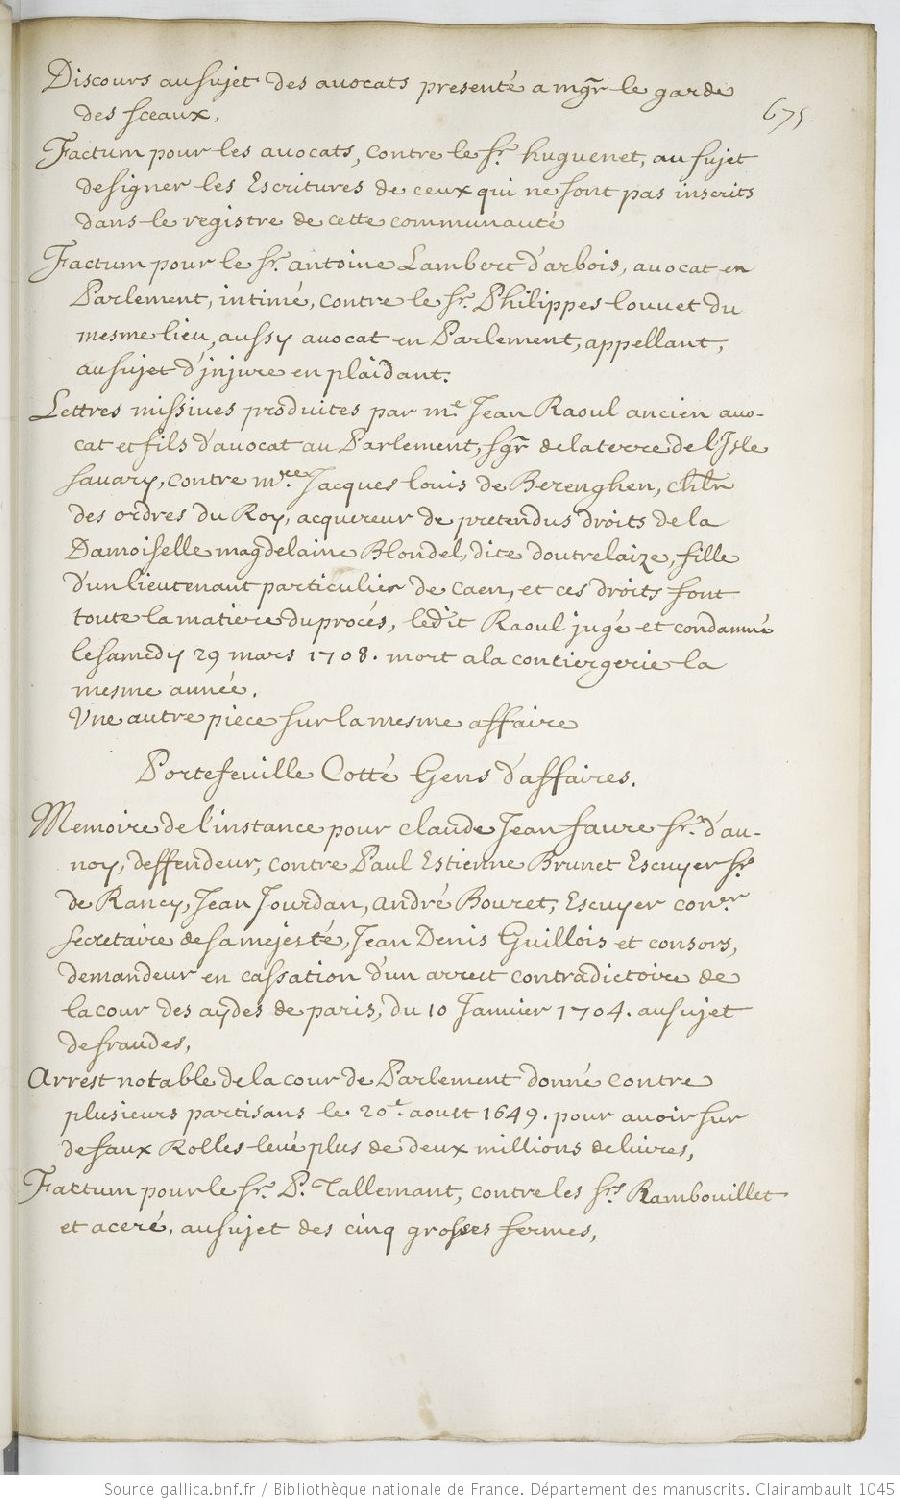 Discours au sujet des avocats presenté a mgr le garde
des sceaux,
675
Factum pour les avocats, contre le sr. huguenet, au sujet
de signer les Escritures de ceux qui ne sont pas inscrits
dans le registre de cette communauté
Factum pour le sr. antoine Lambert d'arbois, avocat en
Parlement, intimé, contre le sr. Philippes louvet du
mesme lieu, aussy avocat en Parlement, appellant,
au sujet d'injure en plaidant.
Lettres missives produites par me. Jean Raoul ancien avo-
cat et fils d'avocat au Parlement, sgr de la terre de l'Isle
savary, contre mre. Jacques louis de Berenghen, chlr
des ordres du Roy, acquereur de pretendus droits de la
Damoiselle magdelaine Blondel, dite doutrelaize, fille
d'un lieutenant particulier de caen, et ces droits font
toute la matiere du procés, ledit Raoul jugé et condamné
le samedy 29 mars 1708. mort a la contiergerie la
mesme année.
Une autre piece sur la mesme affaire
Portefeuille Cotté Gens d'affaires.
Memoire de l'instance pour claude Jean faure sr. d'au-
noy, deffendeur, contre Paul Estienne Brunet Escuyer sr.
de Rancy, Jean Jourdan, andré Bouret, Escuyer coner
secretaire de sa mejesté, Jean Denis Guillois et consors,
demandeur en cassation d'un arrest contradictoire de
la cour des aydes de paris, du 10 Janvier 1704. au sujet
de fraudes,
Arrest notable de la cour de Parlement donné contre
plusieurs partisans le 20t. aoust 1649. pour avoir sur
de faux Rolles levé plus de deux millions de livres,
Factum pour le sr. P. Tallemant, contre les srs Rambouillet
et aceré, au sujet des cinq grosses fermes,
Source gallica.bnf.fr / Bibliothèque nationale de France. Département des manuscrits. Clairambault 1045